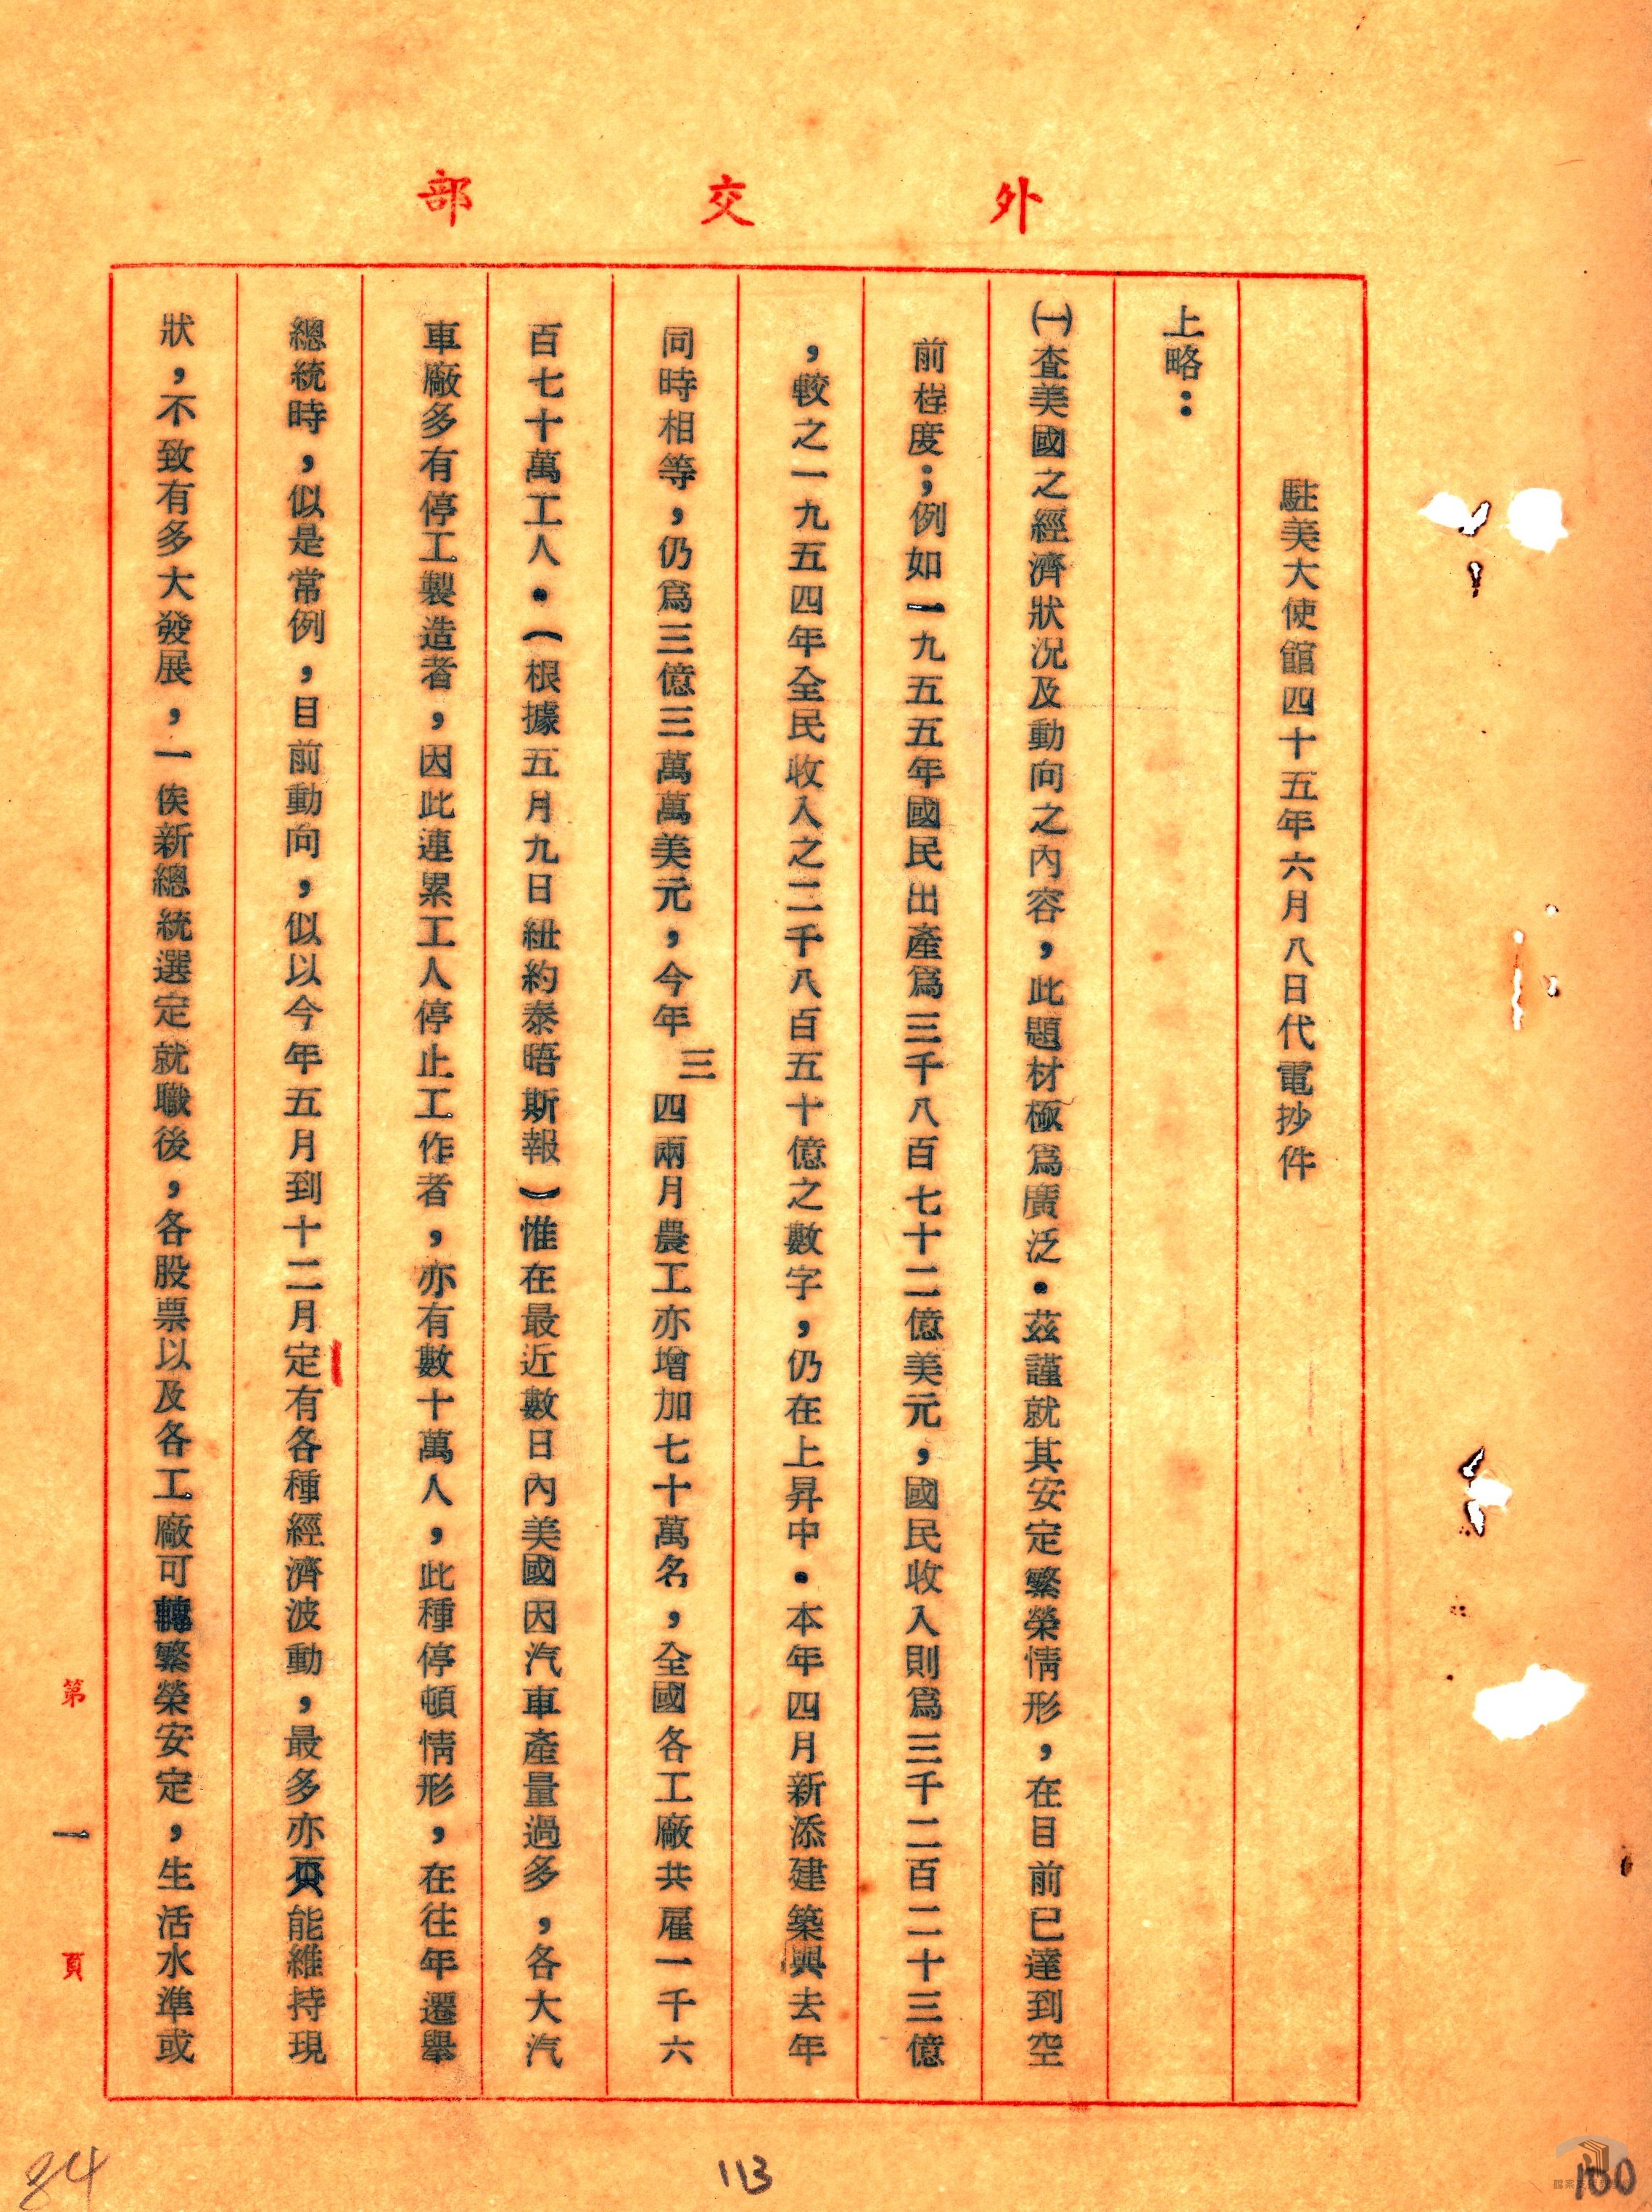 外交部
駐美大使館四十五年六月八日代電抄件
上略：
㈠查美國之經濟狀況及動向之內容，此題材極爲廣泛．茲謹就其安定繁榮情形，在目前已達到空
前程度；例如一九五五年國民出產爲三千八百七十二億美元，國民收入則爲三千二百二十三億
，較之一九五四年全民收入之二千八百五十億之數字，仍在上昇中．本年四月新添建築與去年
同時相等，仍爲三億三萬萬美元，今年三四兩月農工亦增加七十萬名，全國各工廠共雇一千六
百七十萬工人．（根據五月九日紐約泰晤斯報）惟在最近數日內美國因汽車產量過多，各大汽
車廠多有停工製造者，因此連累工人停止工作者，亦有數十萬人，此種停頓情形，在往年選舉
總統時，似是常例，目前動向，似以今年五月到十二月定有各種經濟波動，最多亦能維持現
狀，不致有多大發展，一俟新總統選定就職後，各股票以及各工廠可轉繁榮安定，生活水準或
第一頁
84
113
100